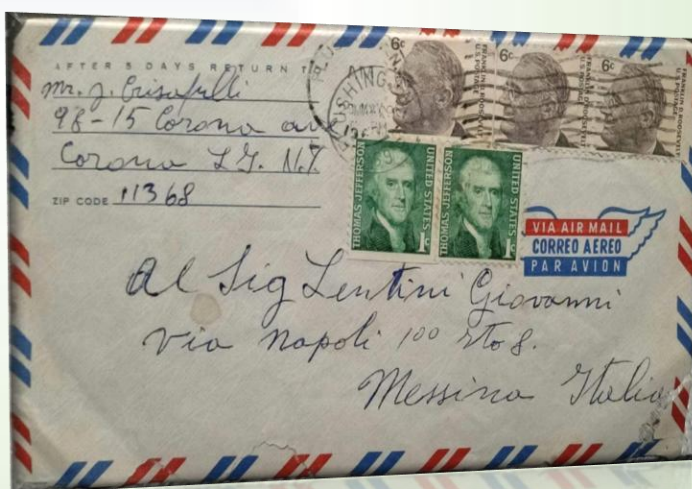 AFTER 5 DAYS RETURN T
Mr. J. Crisafulli
98-15 Corona ave
Corona L.I. N.Y.
ZIP CODE 11368
FLUSHING
AM
6c
FRANKLIN D. ROOSEVELT
U.S. POSTAGE
6c
FRANKLIN D. ROOSEVELT
U.S. POSTAGE
6c
FRANKLIN D. ROOSEVELT
U.S. POSTAGE
THOMAS JEFFERSON
UNITED STATES
1c
THOMAS JEFFERSON
UNITED STATES
1c
VIA AIR MAIL
CORREO AEREO
PAR AVION
Al Sig Lentini Giovanni
via Napoli 100 Sto 8.
Messina Italia